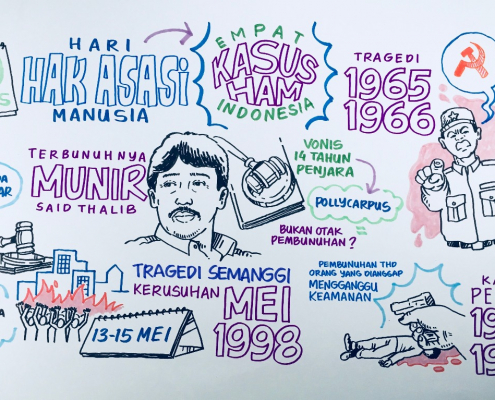 HARI
HAK ASASI
MANUSIA
EMPAT
KASUS
HAM
INDONESIA
TRAGEDI
1965
1966
TERBUNUHNYA
MUNIR
SAID THALIB
VONIS
14 TAHUN
PENJARA
POLLYCARPUS
BUKAN OTAK
PEMBUNUHAN?
TRAGEDI SEMANGGI
KERUSUHAN
MEI
1998
13-15 MEI
PEMBUNUHAN THD
ORANG YANG DIANGGAP
MENGGANGGU
KEAMANAN